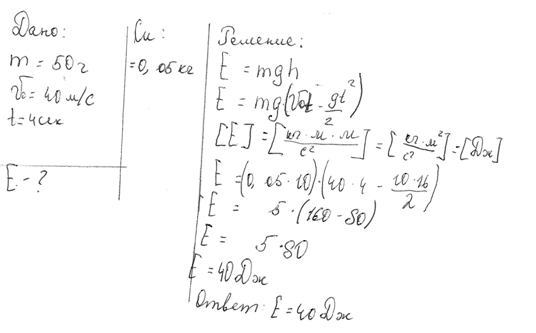 Дано:
m = 50 г
v₀ = 40 м/с
t = 4 сек
E - ?
Си:
= 0,05 кг
Решение:
E = mgh
E = mg(v₀t - gt²/2)
[E] = [кг·м·м/с²] = [кг·м²/с²] = [Дж]
E = (0,05·10)·(40·4 - 10·16/2)
E = 5·(160 - 80)
E = 5·80
E = 40 Дж
Ответ: E = 40 Дж